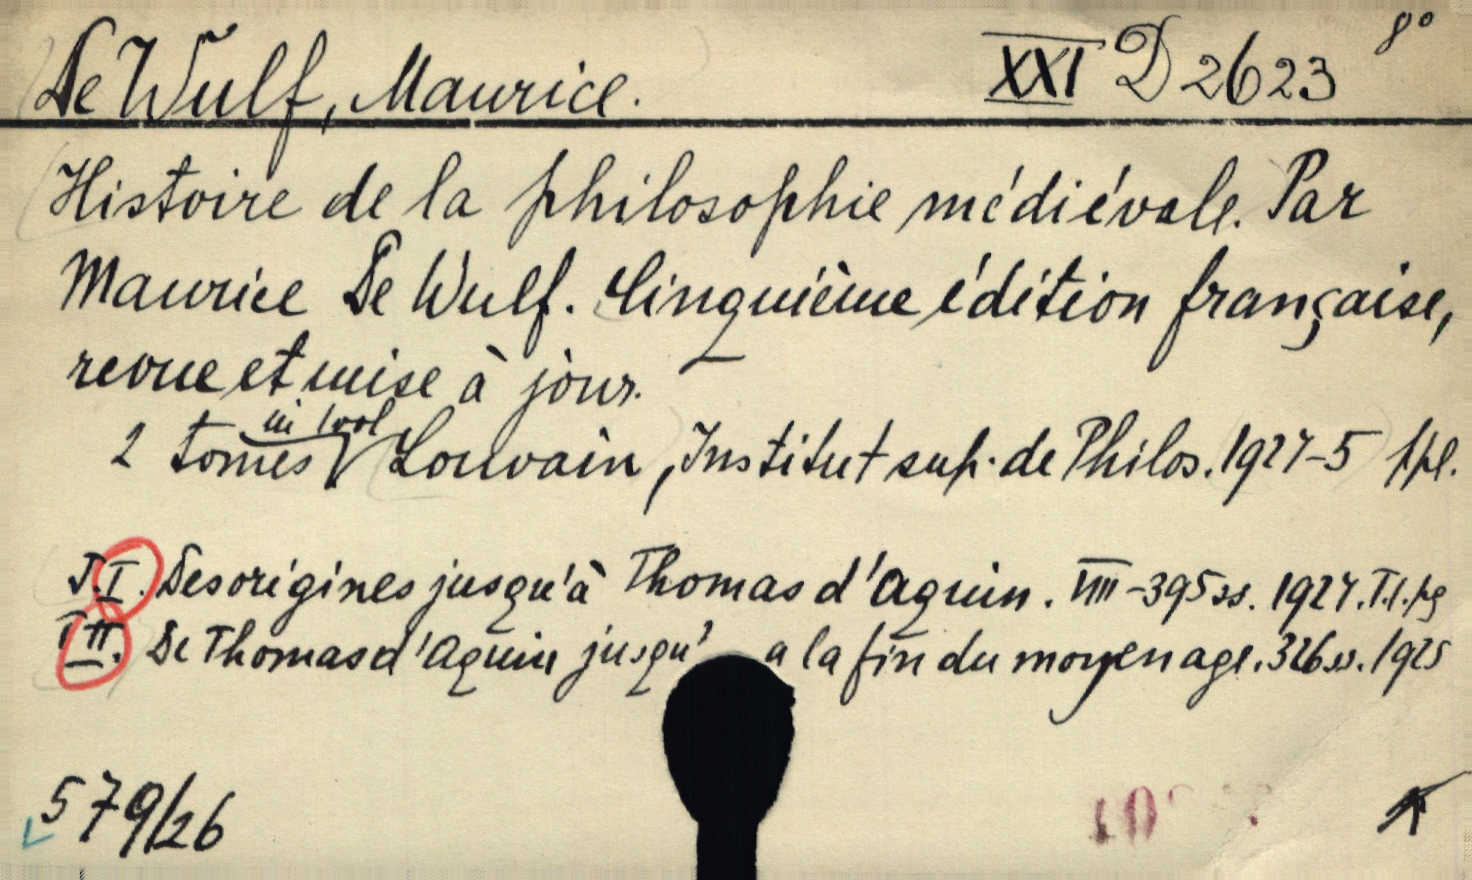 De Wulf, Maurice. XXI D 2623 8°
Histoire de la philosophie médiévale. Par
Maurice De Wulf. Cinquième édition française,
revue et mise à jour.
in 1 vol
2 tomes Louvain, Institut sup. de Philos. 1924-5 1 pl.
T. I. Des origines jusqu'à Thomas d'Aquin. VIII-395 ss. 1924. T. I. pg
T II. De Thomas d'Aquin jusqu' a la fin du moyen age. 326 ss. 1925
579/26